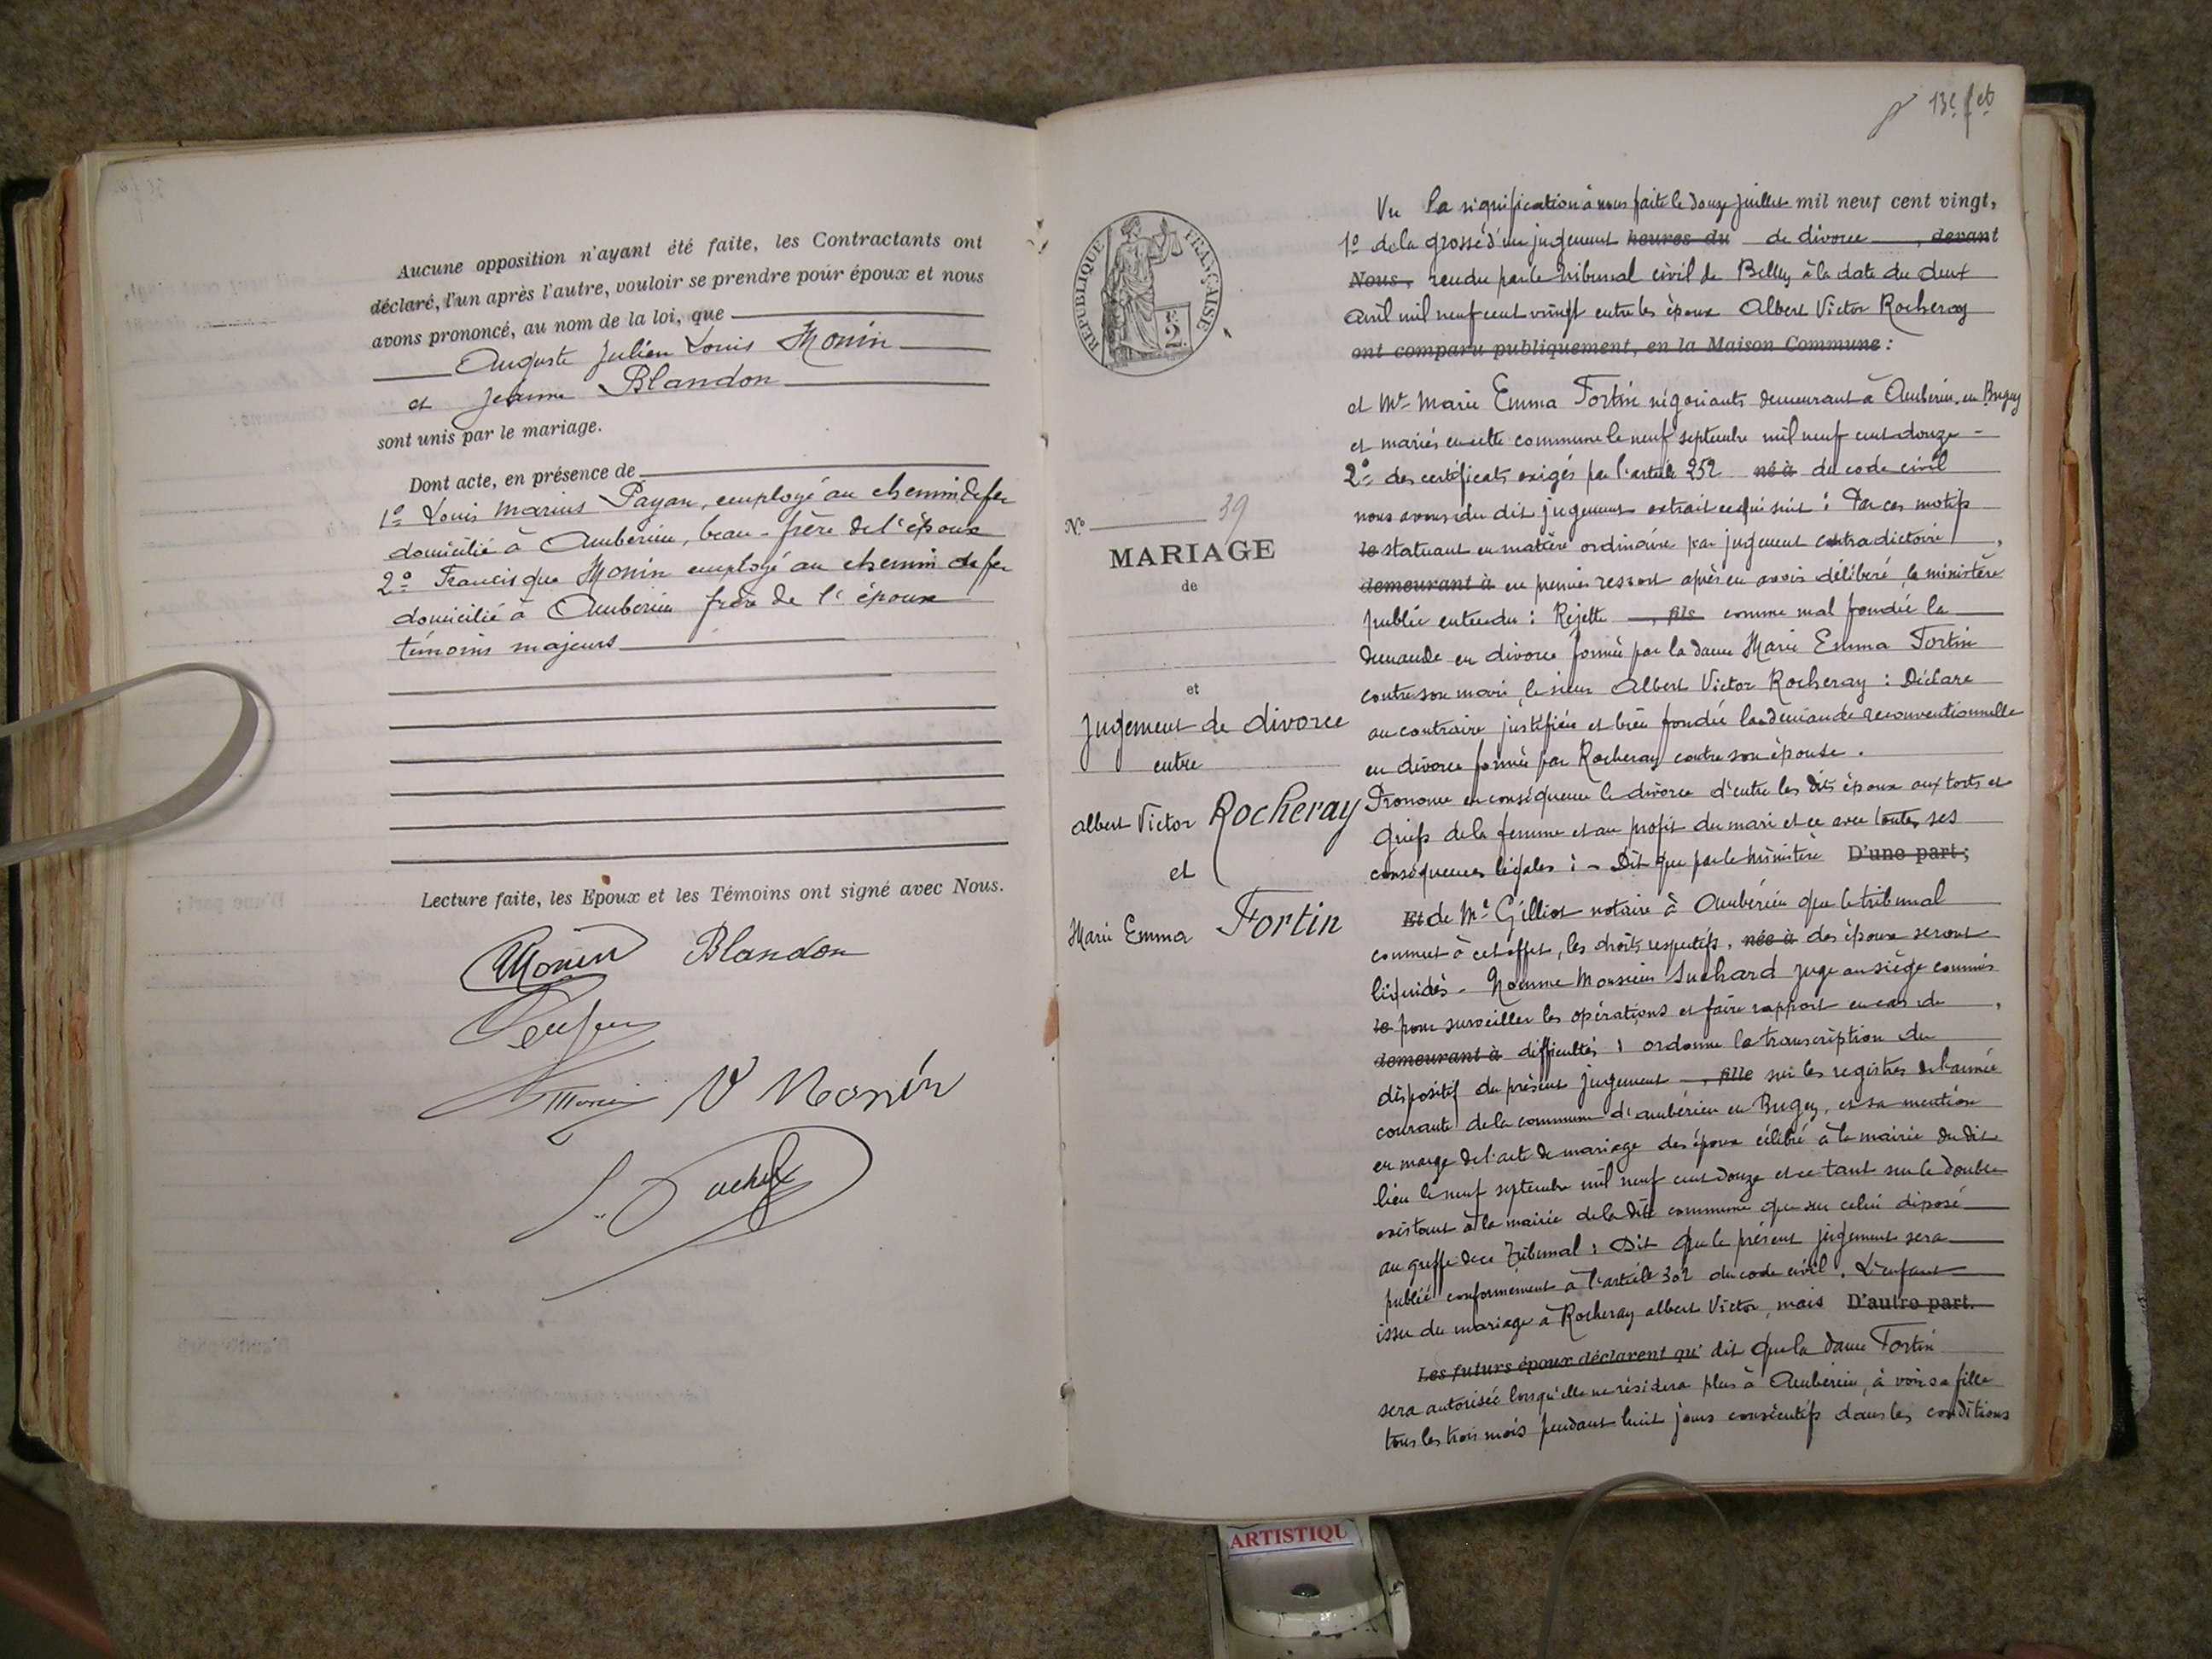 Aucune opposition n'ayant été faite, les Contractants ont
déclaré, l'un après l'autre, vouloir se prendre pour époux et nous
avons prononcé, au nom de la loi, que
Auguste Julien Louis Monin
et Jeanne Blandon
sont unis par le mariage.
Dont acte, en présence de
1º Louis Marius Payan, employé au chemin de fer
domicilié à Ambérieu, beau-frère de l'époux
2º Francisque Monin employé au chemin de fer
domicilié à Ambérieu frère de l'époux
témoins majeurs
Lecture faite, les Epoux et les Témoins ont signé avec Nous.
Monin Blandon
Monin V Monin
13e fet
REPUBLIQUE FRANÇAISE
2
Nº 39
MARIAGE
de
et
Jugement de divorce
entre
Albert Victor Rocheray
et
Marie Emma Fortin
Vu la signification à nous faite le douze juillet mil neuf cent vingt,
1º de la grosse d'un jugement heures du de divorce , devant
Nous, rendu par le tribunal civil de Belley à la date du deux
avril mil neuf cent vingt entre les époux Albert Victor Rocheray
ont comparu publiquement, en la Maison Commune :
et Me Marie Emma Fortin négociants demeurant à Ambérieu en Bugey
et mariés en cette commune le neuf septembre mil neuf cent douze -
2º des certificats exigés par l'article 252 né à du code civil
nous avons du dit jugement extrait ce qui suit : Par ces motifs
le statuant en matière ordinaire par jugement contradictoire ,
demeurant à en premier ressort après en avoir délibéré le ministère
public entendu : Rejette , fils comme mal fondée la
demande en divorce formée par la dame Marie Emma Fortin
contre son mari, le sieur Albert Victor Rocheray : Déclare
au contraire justifiée et bien fondée la demande reconventionnelle
en divorce formée par Rocheray contre son épouse.
Prononce en conséquence le divorce d'entre les dits époux aux torts et
griefs de la femme et au profit du mari et ce avec toutes ses
conséquences légales : - Dit que par le ministère D'une part ;
Et de Me Gilliot notaire à Ambérieu que le tribunal
commet à cet effet, les droits respectifs, née à des époux seront
liquidés - Nomme Monsieur Suchard juge au siège commis
le pour surveiller les opérations et faire rapport en cas de ,
demeurant à difficultés : ordonne la transcription du
dispositif du présent jugement , fille sur les registres de l'année
courante de la commune d'Ambérieu en Bugey, et sa mention
en marge de l'acte de mariage des époux célébré à la mairie du dit
lieu le neuf septembre mil neuf cent douze et ce tant sur le double
existant à la mairie de la dite commune que sur celui déposé
au greffe de ce Tribunal : Dit que le présent jugement sera
publié conformément à l'article 302 du code civil. L'enfant
issu du mariage à Rocheray Albert Victor, mais D'autre part.
Les futurs époux déclarent qu' dit que la dame Fortin
sera autorisée lorsqu'elle ne résidera plus à Ambérieu, à voir sa fille
tous les trois mois pendant huit jours consécutifs dans les conditions
ARTISTIQU